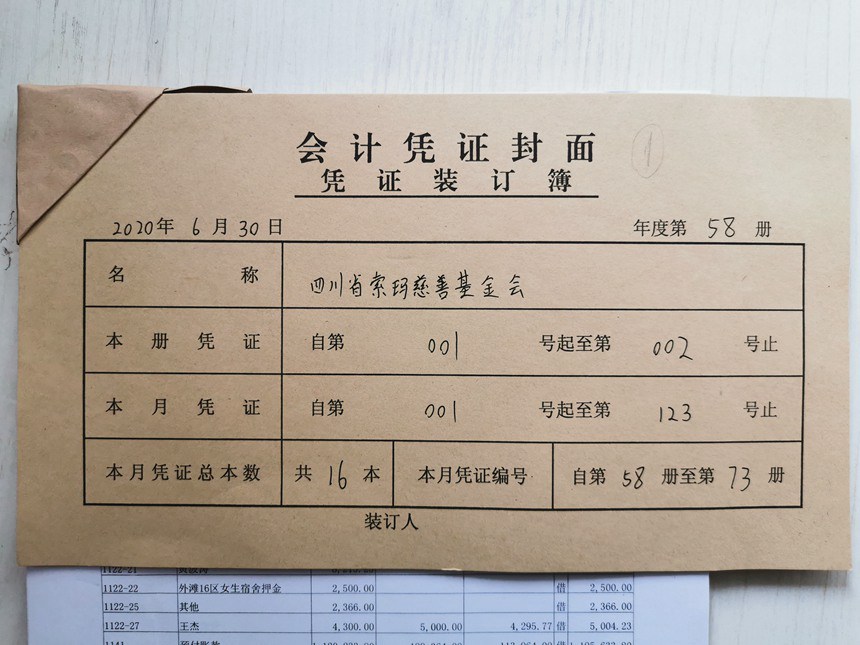 会计凭证封面
①
凭证装订簿
2020年 6月30日 年度第 58 册
名称 四川省索玛慈善基金会
本册凭证 自第 001 号起至第 002 号止
本月凭证 自第 001 号起至第 123 号止
本月凭证总本数 共 16 本 本月凭证编号 自第 58 册至第 73 册
装订人
1122-21
1122-22 外滩16区女生宿舍押金 2,500.00 借 2,500.00
1122-25 其他 2,366.00 借 2,366.00
1122-27 王杰 4,300.00 5,000.00 4,295.77 借 5,004.23
1141 预付账款 借